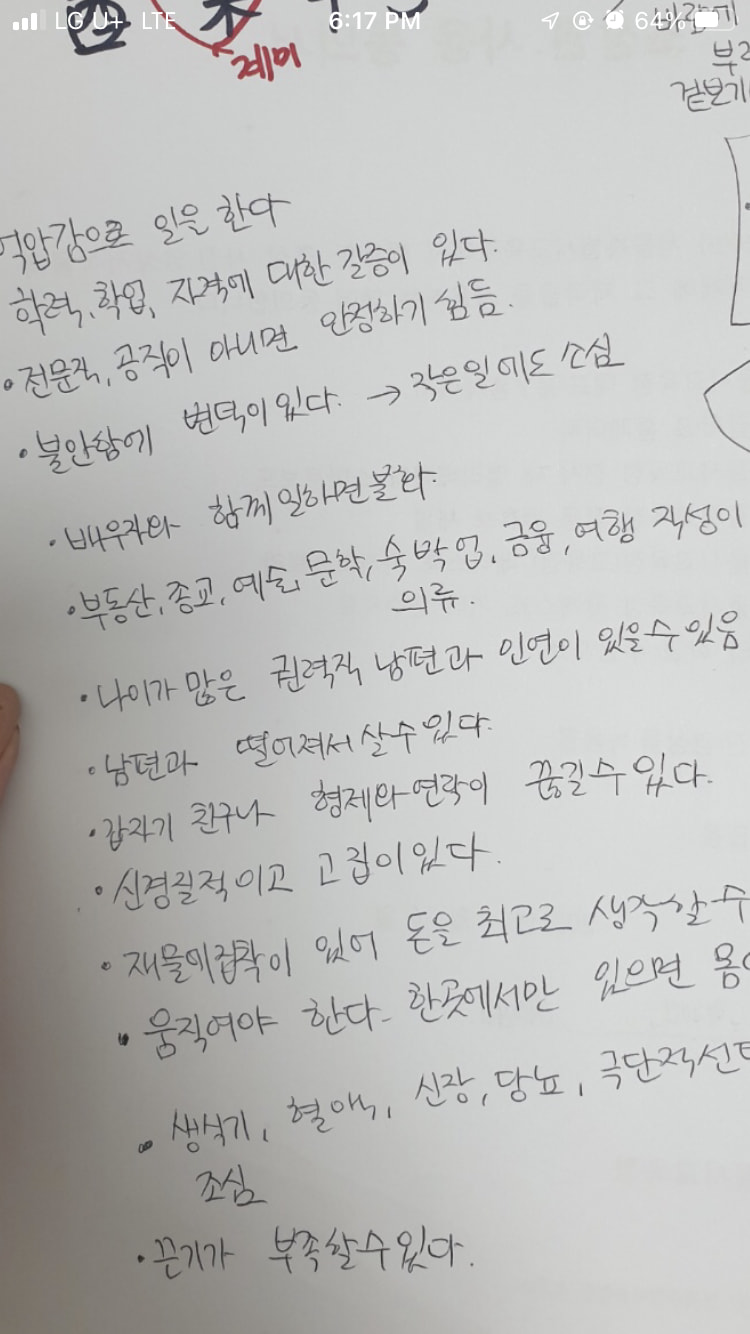 LG U+ LTE 6:17 PM 64%
재미
겉보기
억압감으로 일을 한다
학력, 학업, 자격에 대한 갈증이 있다.
• 전문직, 공직이 아니면 안정하기 힘듬.
• 불안함에 변덕이 있다. → 작은일에도 소심
• 배우자와 함께 일하면 불화.
• 부동산, 종교, 예술, 문학, 숙박업, 금융, 여행 직성이
의류.
• 나이가 많은 권력직 남편과 인연이 있을수 있음
• 남편과 떨어져서 살수 있다.
• 갑자기 친구나 형제와 연락이 끊길수 있다.
• 신경질적이고 고집이 있다.
• 재물에 집착이 있어 돈을 최고로 생각할 수
• 움직여야 한다. 한곳에서만 있으면 몸이
• 생식기, 혈액, 신장, 당뇨, 극단적선택
조심
• 끈기가 부족할수 있다.